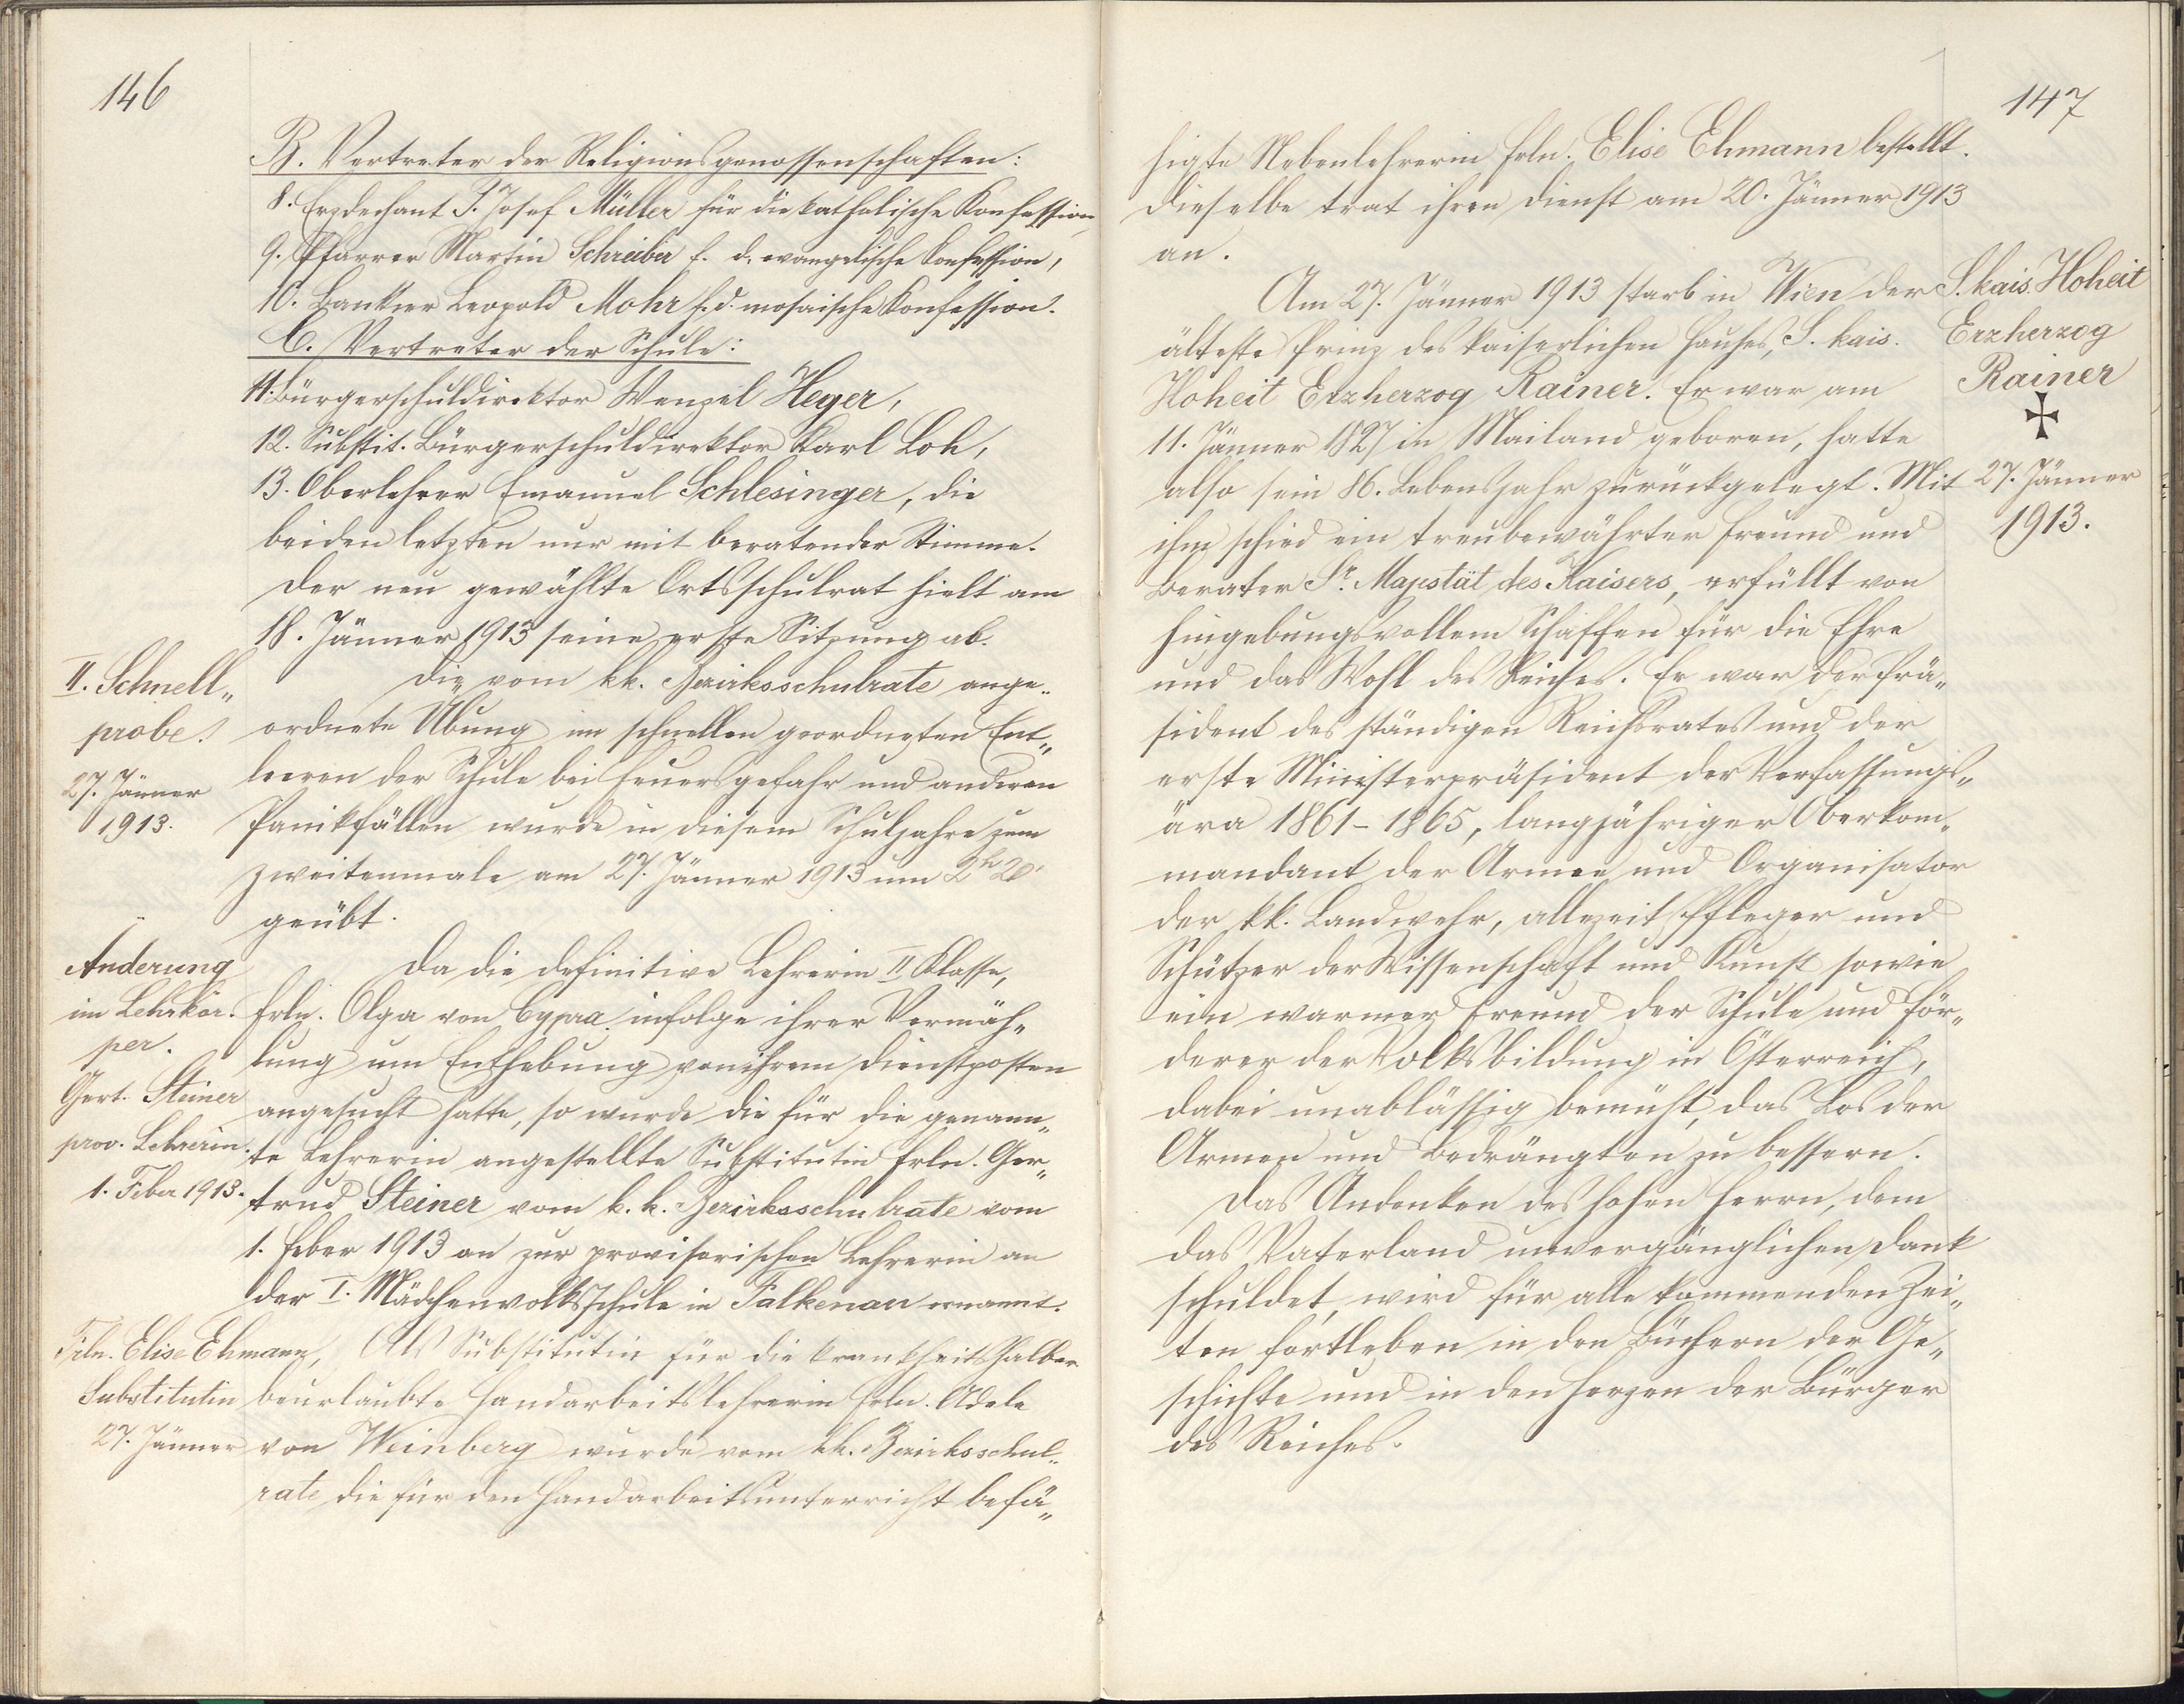 146
B. Vertreter der Religionsgenossenschaften:
8. Erzdechant P. Josef Müller für die katholische Konfession,
9. Pfarrer Martin Schreiber f. d. evangelische Konfession,
10. Bankier Leopold Mohr f. d. mosaische Konfession.
C. Vertreter der Schule:
11. Bürgerschuldirektor Wenzel Heger,
12. Substit. Bürgerschuldirektor Karl Loh,
13. Oberlehrer Emanuel Schlesinger, die
beiden letzten nur mit beratender Stimme.
Der neu gewählte Ortsschulrat hielt am
18. Jänner 1913 seine erste Sitzung ab.
II. Schnell„
probe.
27. Jänner
1913.
Die vom kk. Bezirksschulrate ange„
ordnete Übung im schnellen geordneten Ent„
leeren der Schule bei Feuersgefahr und anderen
Panikfällen wurde in diesem Schuljahre zum
zweitenmale am 27. Jänner 1913 um 2h 20'
geübt.
Änderung
im Lehrkör.
per.
Gert. Steiner
prov. Lehrerin.
1. Feber 1913.
Da die definitive Lehrerin II Klasse,
Frln. Olga von Cypra infolge ihrer Vermäh„
lung um Enthebung von ihrem Dienstposten
angesucht hatte, so wurde die für die genann„
te Lehrerin angestellte Substitutin Frln. Ger„
trud Steiner vom k. k. Bezirksschulrate vom
1. Feber 1913 an zur provisorischen Lehrerin an
der I. Mädchenvolksschule in Falkenau ernannt.
Frln. Elise Ehmann,
Substitutin
27. Jänner
Als Substitutin für die krankheitshalber
beurlaubte Handarbeitslehrerin Frln. Adele
von Weinberg wurde vom kk. Bezirksschul„
rate die für den Handarbeitsunterricht befä„
147
higte Nebenlehrerin Frln. Elise Ehmann bestellt.
Dieselbe trat ihren Dienst am 20. Jänner 1913
an.
S. kais. Hoheit
Erzherzog
Rainer
✠
27. Jänner
1913.
Am 27. Jänner 1913 starb in Wien der
älteste Prinz des kaiserlichen Hauses, S. kais.
Hoheit Erzherzog Rainer. Er war am
11. Jänner 1827 in Mailand geboren, hatte
also sein 86. Lebensjahr zurückgelegt. Mit
ihm schied ein treubewährter Freund und
Berater Sr. Majestät des Kaisers, erfüllt von
hingebungsvollem Schaffen für die Ehre
und das Wohl des Reiches. Er war der Prä„
sident des ständigen Reichsrates und der
erste Ministerpräsident der Verfassungs„
ära 1861-1865, langjähriger Oberkom„
mandant der Armee und Organisator
der kk. Landwehr, allezeit Pfleger und
Schützer der Wissenschaft und Kunst sowie
ein warmer Freund der Schule und För„
derer der Volksbildung in Österreich,
dabei unablässig bemüht, das Los der
Armen und Bedrängten zu bessern.
Das Andenken des hohen Herrn, dem
das Vaterland unvergänglichen Dank
schuldet, wird für alle kommenden Zei„
ten fortleben in den Büchern der Ge„
schichte und in den Herzen der Bürger
des Reiches.